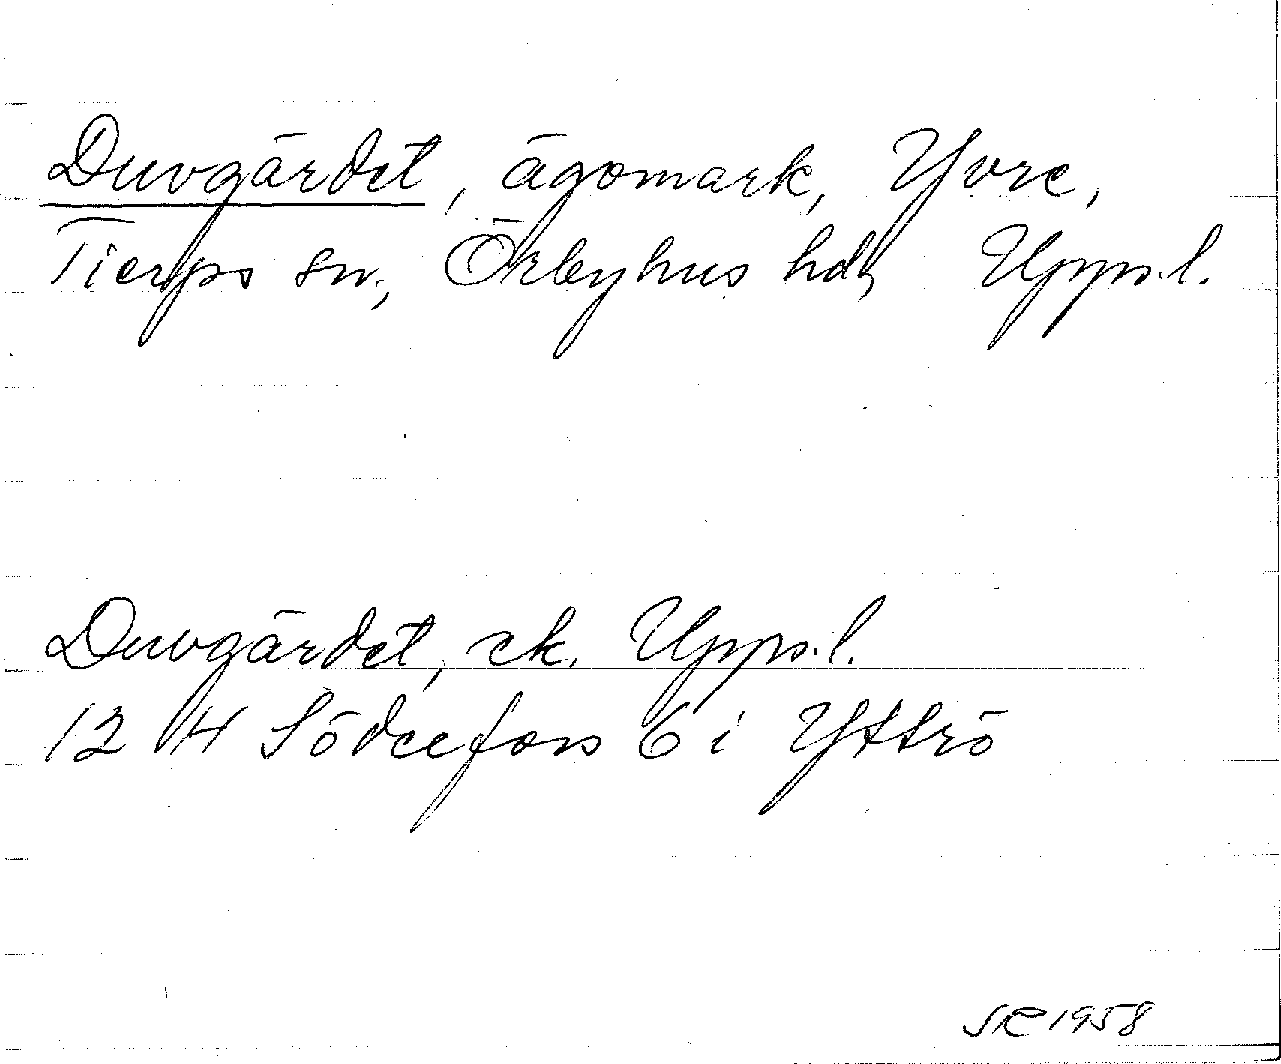 Duvgärdet, ägomark, Yvre,
Tierps sn, Örbyhus hd, Uppl.
Duvgärdet, ek. Uppl.
12 H Söderfors 6 i Yttrö
SR 1958